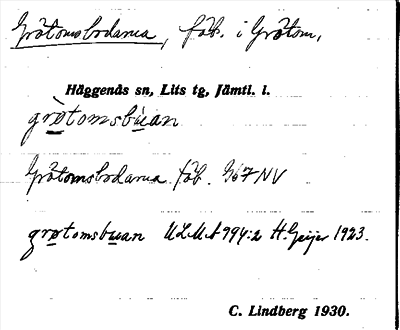 Gråtomsbodarna, fäb. i Gråtom,
Häggenås sn, Lits tg, Jämtl. l.
gròtomsbùan
Gråtomsbodarna fäb. G67NV
grotomsbuan ULMA 994:2 H. Geijer 1923.
C. Lindberg 1930.